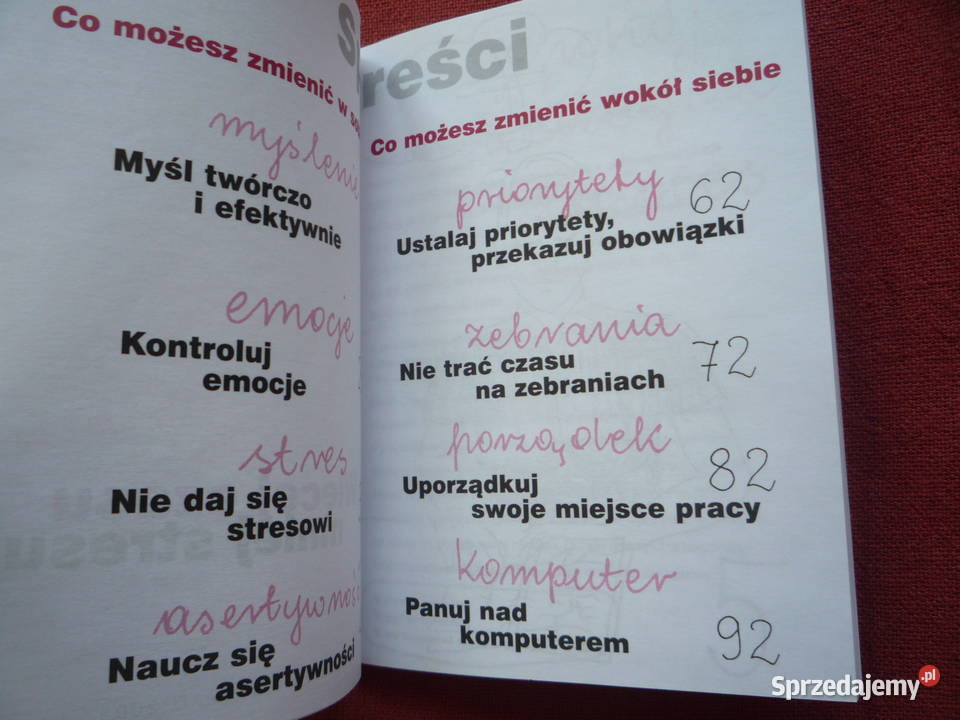 Co możesz zmienić w
myślenie
Myśl twórczo
i efektywnie
emocje
Kontroluj
emocje
stres
Nie daj się
stresowi
asertywność
Naucz się
asertywności
S
reści
Co możesz zmienić wokół siebie
priorytety
62
Ustalaj priorytety,
przekazuj obowiązki
zebrania
Nie trać czasu
72
na zebraniach
porządek
82
Uporządkuj
swoje miejsce pracy
Komputer
Panuj nad
92
komputerem
Sprzedajemy.pl